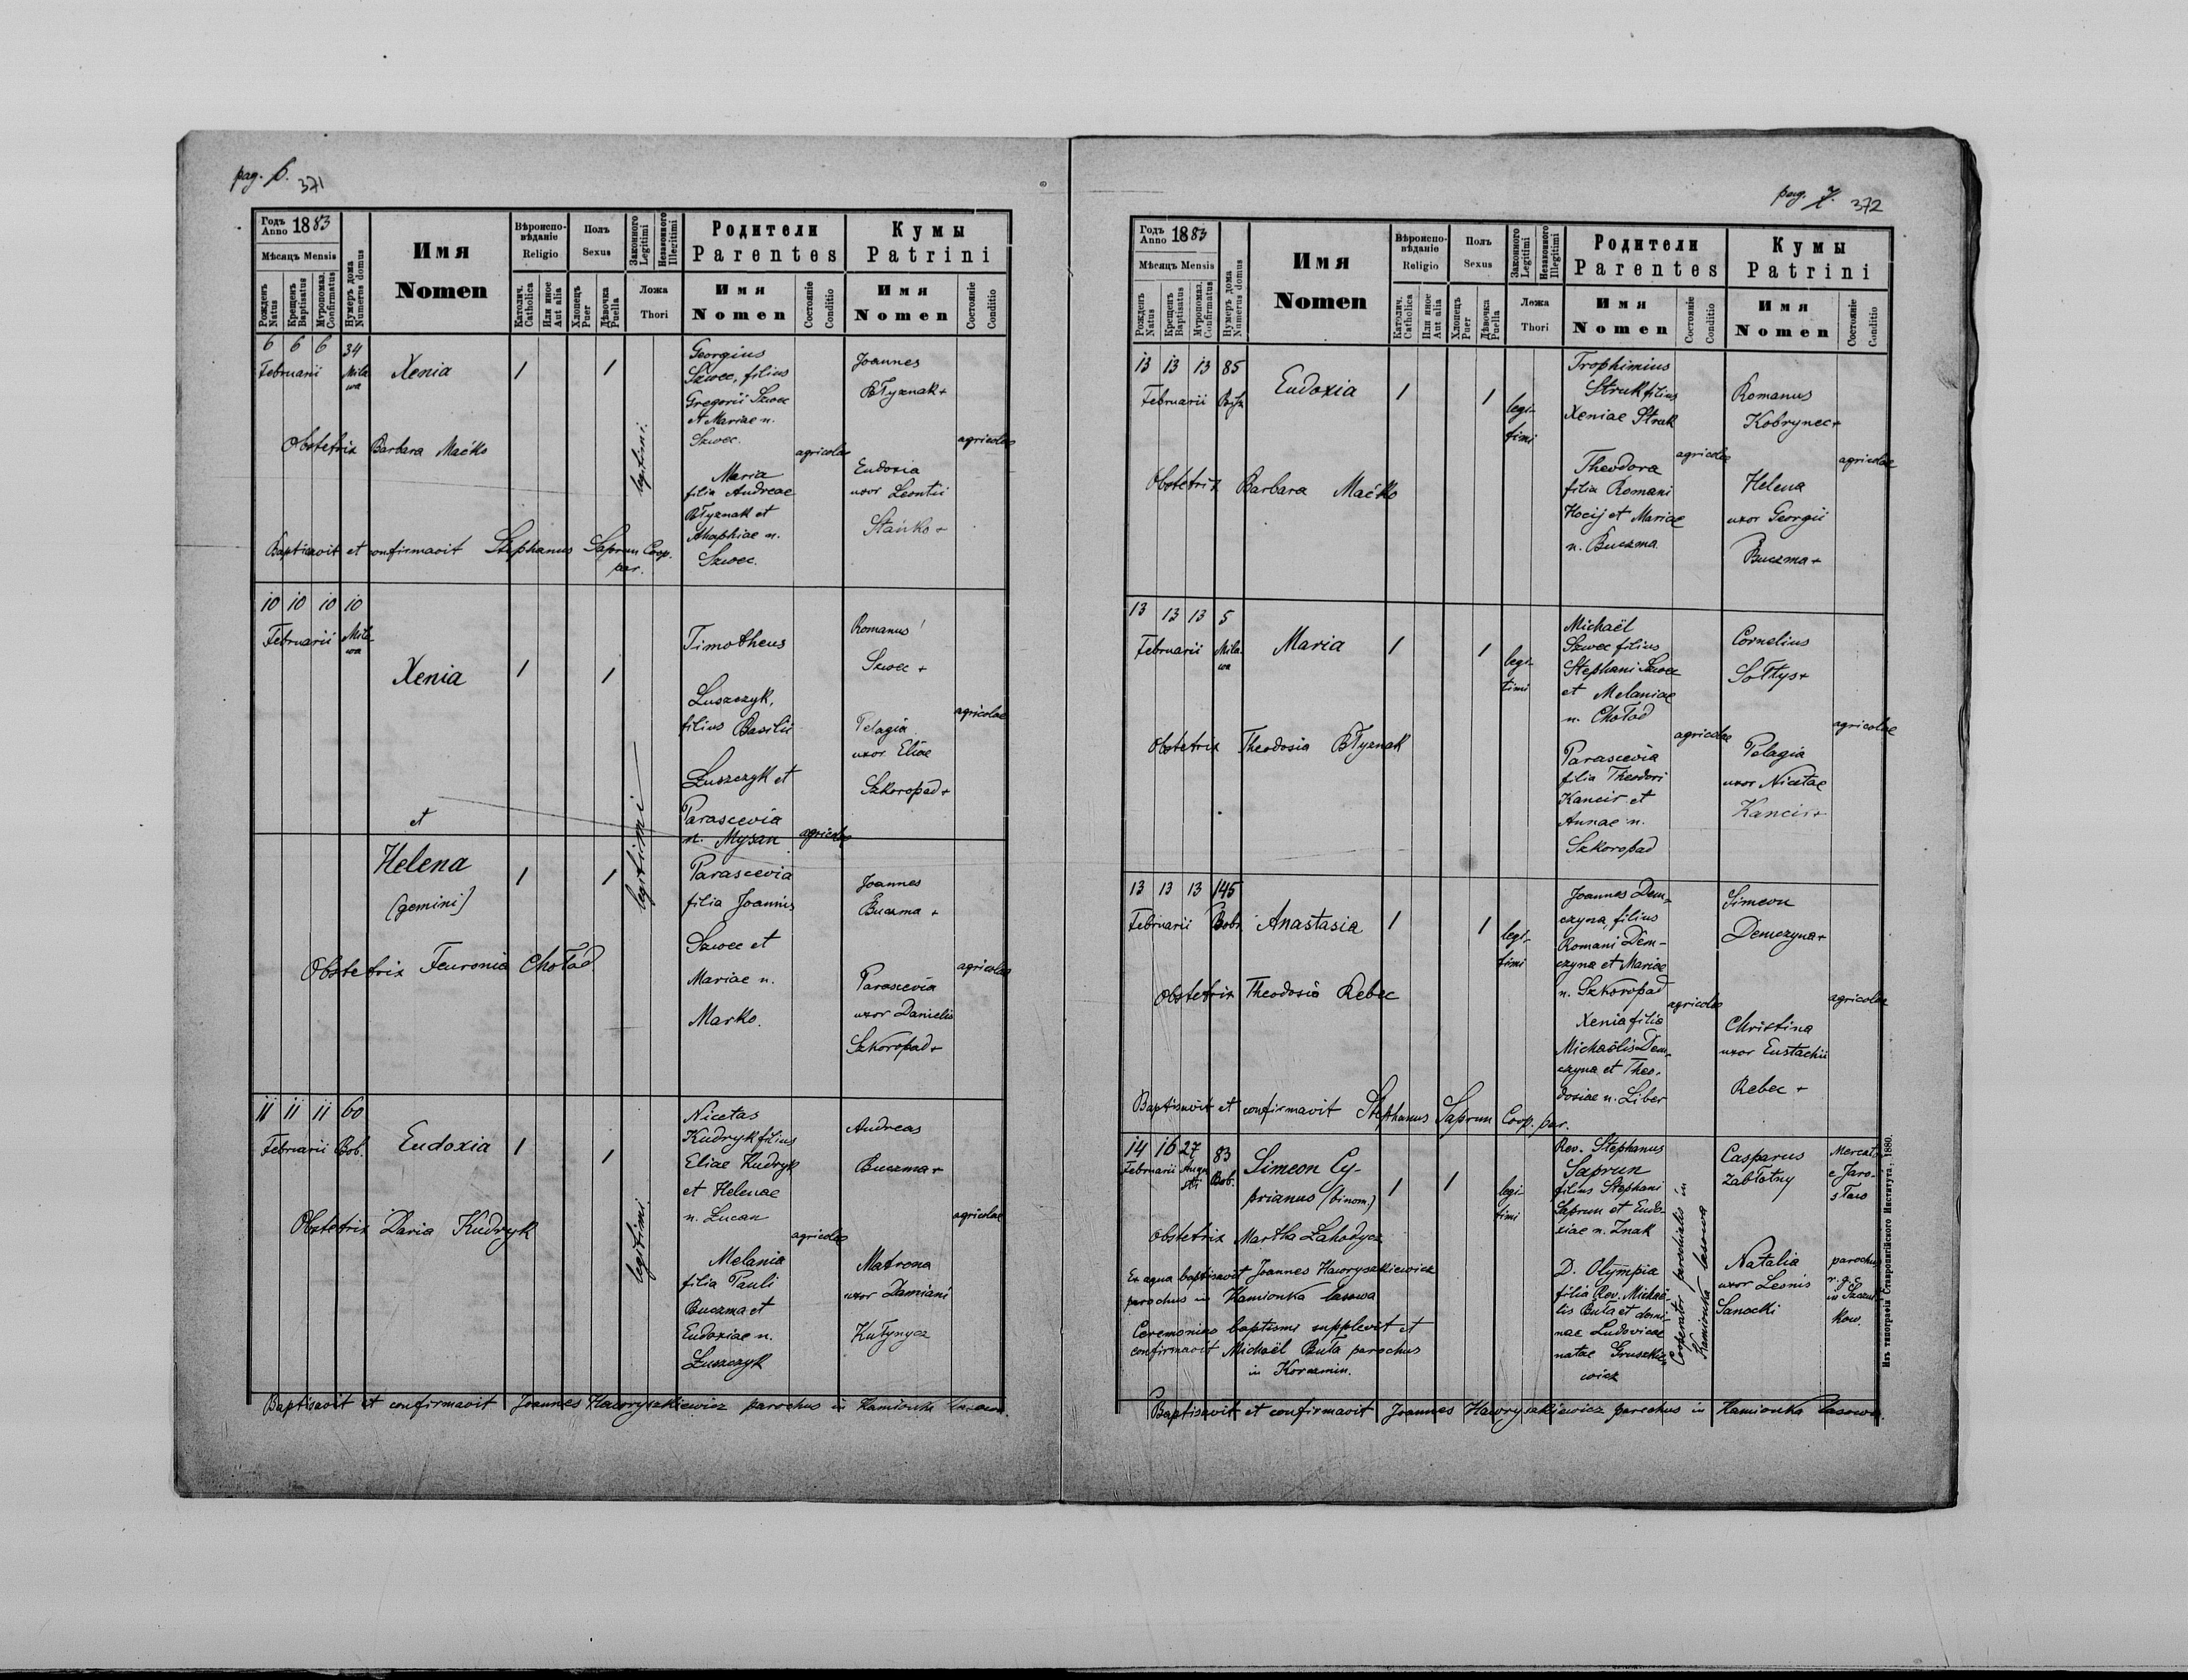 pag. 6. 371
Годъ Anno 1883
Мѣсяцъ Mensis
Рожденъ Natus
Крещенъ Baptisatus
Мѵропомаз. Confirmatus
Нумеръ дома Numerus domus
Имя
Nomen
Вѣроиспо-
вѣданіе
Religio
Католич. Catholica
Или иное Aut alia
Полъ
Sexus
Хлопецъ Puer
Дѣвочка Puella
Законного Legitimi
Незаконного Illegitimi
Ложа
Thori
Родители
Parentes
Имя
Nomen
Состояніе Conditio
Кумы
Patrini
Имя
Nomen
Состояніе Conditio
6 6 6 34
Februarii Mila
wa
Xenia
1 1
legitimi.
Georgius
Szwec, filius
Gregorii Szwec
et Mariae n.
Szwec.
Maria
filia Andreae
Błyznak et
Agaphiae n.
Szwec.
agricolae
Joannes
Błyznak+
Eudoxia
uxor Leontii
Stańko +
agricolae
Obstetrix Barbara Maćko
Baptisavit et confirmavit Stephanus Saprun Coop.
par.
10 10 10 10
Februarii Mila
wa
Xenia
1 1
et
Timotheus
Łuszczyk,
filius Basilii
Łuszczyk et
Parascevia
n. Mysan
agricolae
Romanus
Szwec +
Pelagia
uxor Eliae
Szkoropad+
agricolae
legitimi
Helena
(gemini)
1 1
Parascevia
filia Joannis
Szwec et
Mariae n.
Marko.
Joannes
Buczma +
Parascevia
uxor Danielis
Szkoropad+
agricolae
Obstetrix Feuronia Chołod
11 11 11 60
Februarii Bob.
Eudoxia
1 1
legitimi.
Nicetas
Kudryk filius
Eliae Kudryk
et Helenae
n. Lucan
Melania
filia Pauli
Buczma et
Eudoxiae n.
Łuszczyk
agricolae
Andreas
Buczma+
Matrona
uxor Damiani
Kułynycz
agricolae
Obstetrix Daria Kudryk
Baptisavit et confirmavit Joannes Hawryszkiewicz parochus in Kamionka lasowa.
pag. 7. 372
Годъ Anno 1883
Мѣсяцъ Mensis
Рожденъ Natus
Крещенъ Baptisatus
Мѵропомаз. Confirmatus
Нумеръ дома Numerus domus
Имя
Nomen
Вѣроиспо-
вѣданіе
Religio
Католич. Catholica
Или иное Aut alia
Полъ
Sexus
Хлопецъ Puer
Дѣвочка Puella
Законного Legitimi
Незаконного Illegitimi
Ложа
Thori
Родители
Parentes
Имя
Nomen
Состояніе Conditio
Кумы
Patrini
Имя
Nomen
Состояніе Conditio
13 13 13 85
Februarii
Eudoxia
1 1
legi-
timi
Trophimius
Struk filius
Xeniae Struk
Theodora
filia Romani
Kocij et Mariae
n. Buczma
agricolae
Romanus
Kobrynec+
Helena
uxor Georgii
Buczma+
agricolae
Obstetrix Barbara Maćko
13 13 13 5
Februarii Mila-
wa
Maria
1 1
legi-
timi
Michaël
Szwec filius
Stephani Szwec
et Melaniae
n. Chołod
Parascevia
filia Theodori
Kancir et
Annae n.
Szkoropad
agricolae
Cornelius
Sołtys+
Pelagia
uxor Nicetae
Kancir+
agricolae
Obstetrix Theodosia Błyznak
13 13 13 145
Februarii Bobr.
Anastasia
1 1
legi-
timi
Joannes Dem-
czyna, filius
Romani Dem-
czyna et Mariae
n. Szkoropad
Xenia filia
Michaëlis Dem-
czyna et Theo-
dosiae n. Liber
agricolae
Simeon
Demczyna+
Christina
uxor Eustachii
Rebec +
agricolae
Obstetrix Theodosia Rebec
Baptisavit et confirmavit Stephanus Saprun Coop. par.
14 16 27 83
Februarii Augu
sti Bob.
Simeon Cy-
prianus (binom.)
1 1
legi-
timi
Rev. Stephanus
Saprun
filius Stephani
Saprun et Eudo-
xiae n. Znak
D. Olympia
filia Rev. Michaë-
lis Buła et domi-
nae Ludovicae
natae Gruszkie-
wicz
Cooperator parochialis in
Kamionka lasowa
Casparus
Zabłotny
Mercat.
e Jaro-
sław
Natalia
uxor Leonis
Sanocki
parochus
r. g. c.
in
kow.
Obstetrix Martha Lahodycz
Ex aqua baptisavit Joannes Hawryszkiewicz
parochus in Kamionka lasowa
Ceremonias baptismi supplevit et
confirmavit Michaël Buła parochus
in Korczmin.
Baptisavit et confirmavit Joannes Hawryszkiewicz parochus in Kamionka lasowa.
Изъ типографіи Ставропигійского Института, 1880.